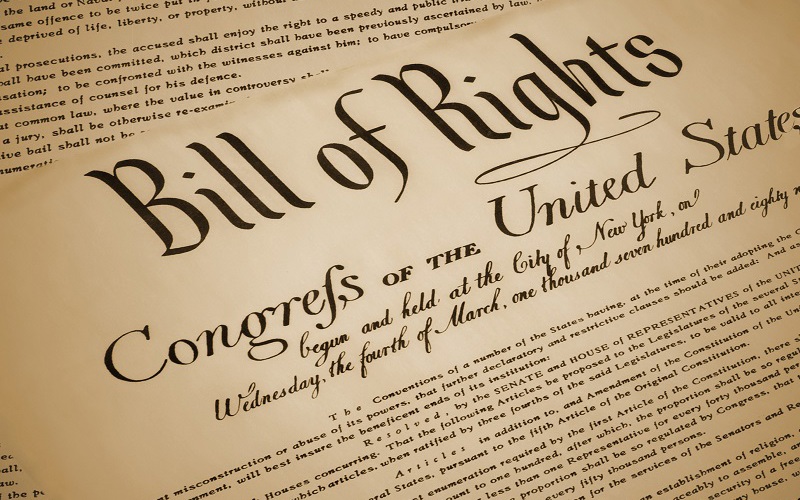 the land or Nava
same offence to be twice put in
deprived of life, liberty, or property, without
prosecutions, the accused shall enjoy the right to a speedy and public
have been committed, which district shall have been previously ascertained by law.
to be confronted with the witnesses against him; to have compulso
assistance of counsel for his defence.
common law, where the value in controversy
a jury, shall be otherwise re-exami
bail shall not be
Bill of Rights
Congreſs OF THE United States
begun and held at the City of New York, on
Wednesday, the fourth of March, one thousand seven hundred and eighty
The Conventions of a number of the States having, at the time of their adopting the
misconstruction or abuse of its powers, that further declaratory and restrictive clauses should be added: And as
will best insure the beneficent ends of its institution:
Resolved, by the SENATE and HOUSE of REPRESENTATIVES of the UNIT
Houses concurring. That the following Articles be proposed to the Legislatures of the several
which articles, when ratified by three fourths of the said Legislatures, to be valid to all inte
Articles in addition to, and Amendment of the Constitution of the Un
States, pursuant to the fifth Article of the Original Constitution.
enumeration required by the first Article of the Constitution, there
to one hundred, after which, the proportion shall be so regu
less than one Representative for every forty thousand per
proportion shall be so regulated by Congress, that
every fifty thousand persons.
for the services of the Senators and Re
establishment of religion,
to assemble, an
security of a free
house, w